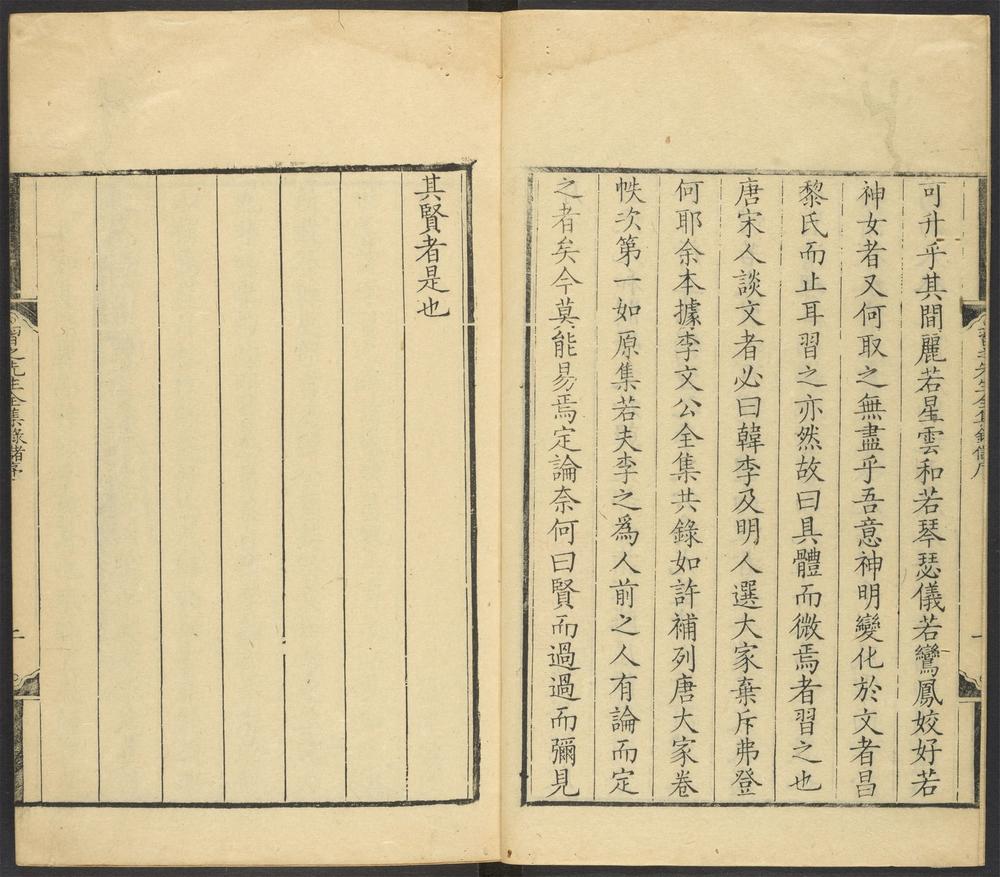 可升乎其間麗若星雲和若琴瑟儀若鸞鳳姣好若
神女者又何取之無盡乎吾意神明變化於文者昌
黎氏而止耳習之亦然故曰具體而微焉者習之也
唐宋人談文者必曰韓李及明人選大家棄斥弗登
何耶余本據李文公全集共錄如許補列唐大家卷
帙次第一如原集若夫李之為人前之人有論而定
之者矣今莫能易焉定論奈何曰賢而過過而彌見
其賢者是也
習之先生全集錄緒序
二